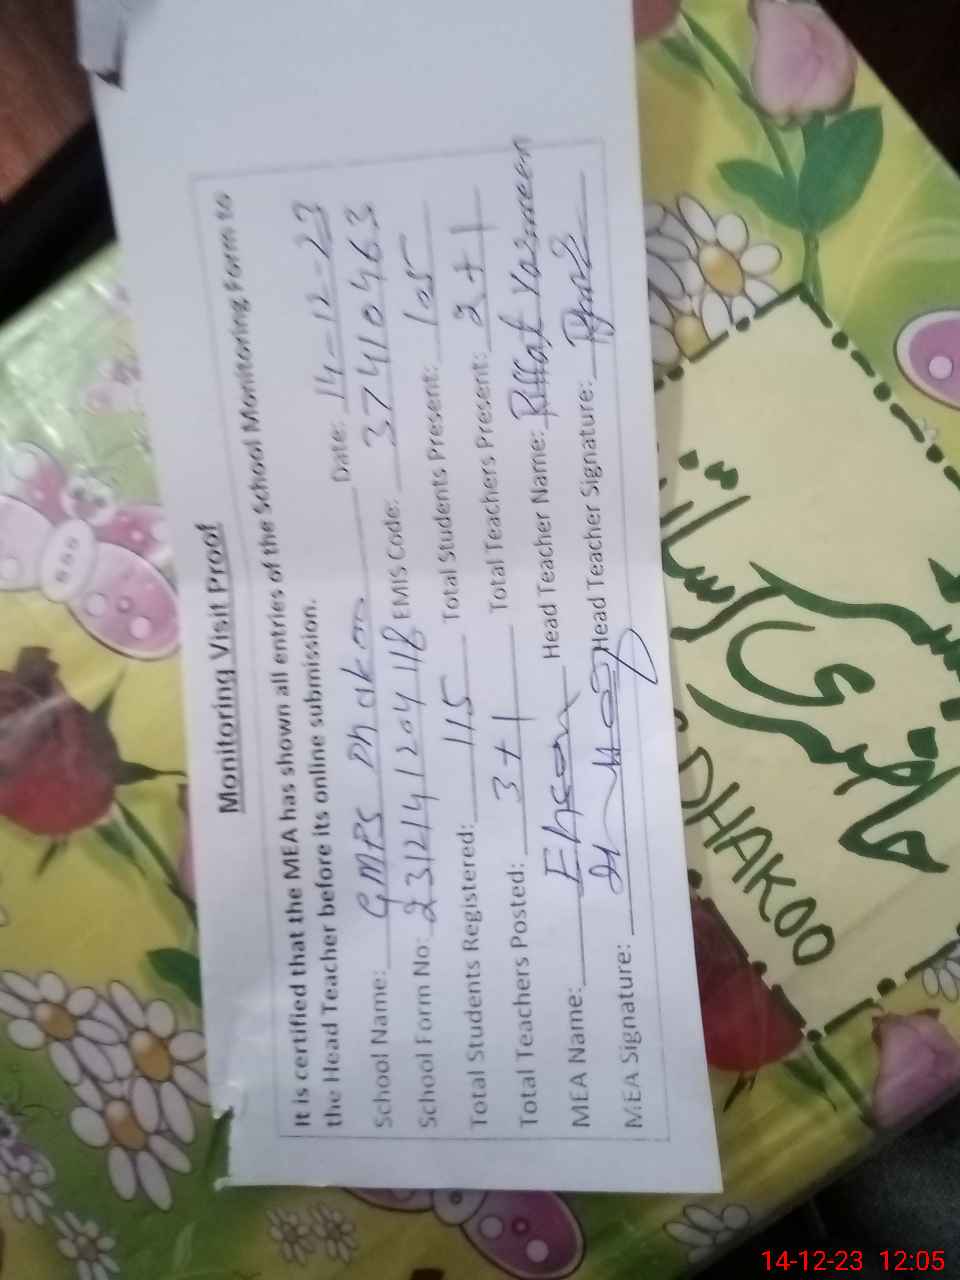 Monitoring Visit Proof
It is certified that the MEA has shown all entries of the School Monitoring Form to
the Head Teacher before its online submission.
School Name: GMPS Dhakoo Date: 14-12-23
School Form No: 2312141204118 EMIS Code: 37410463
Total Students Registered: 115 Total Students Present: 105
Total Teachers Posted: 3+1 Total Teachers Present: 2+1
MEA Name: Ehsan Head Teacher Name: Riffat Yasmeen
MEA Signature: Head Teacher Signature:
حاضری اساتذہ
DHAKOO
14-12-23 12:05